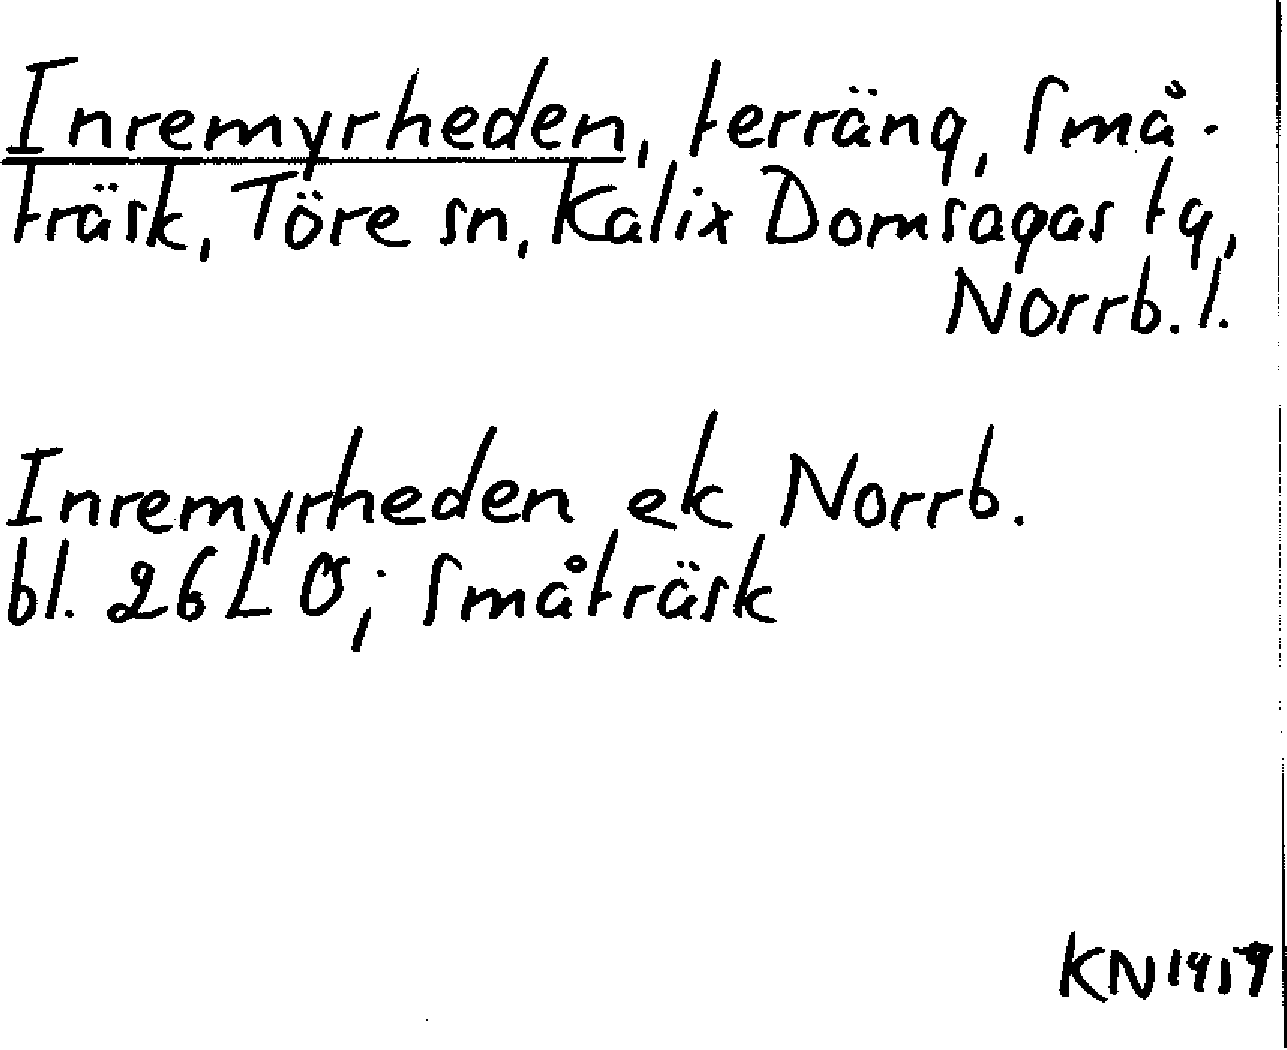 Inremyrheden, terräng, Små-
träsk, Töre sn, Kalix Domsagas tg,
Norrb. l.
Inremyrheden ek Norrb.
bl. 26 L O; Småträsk
KN